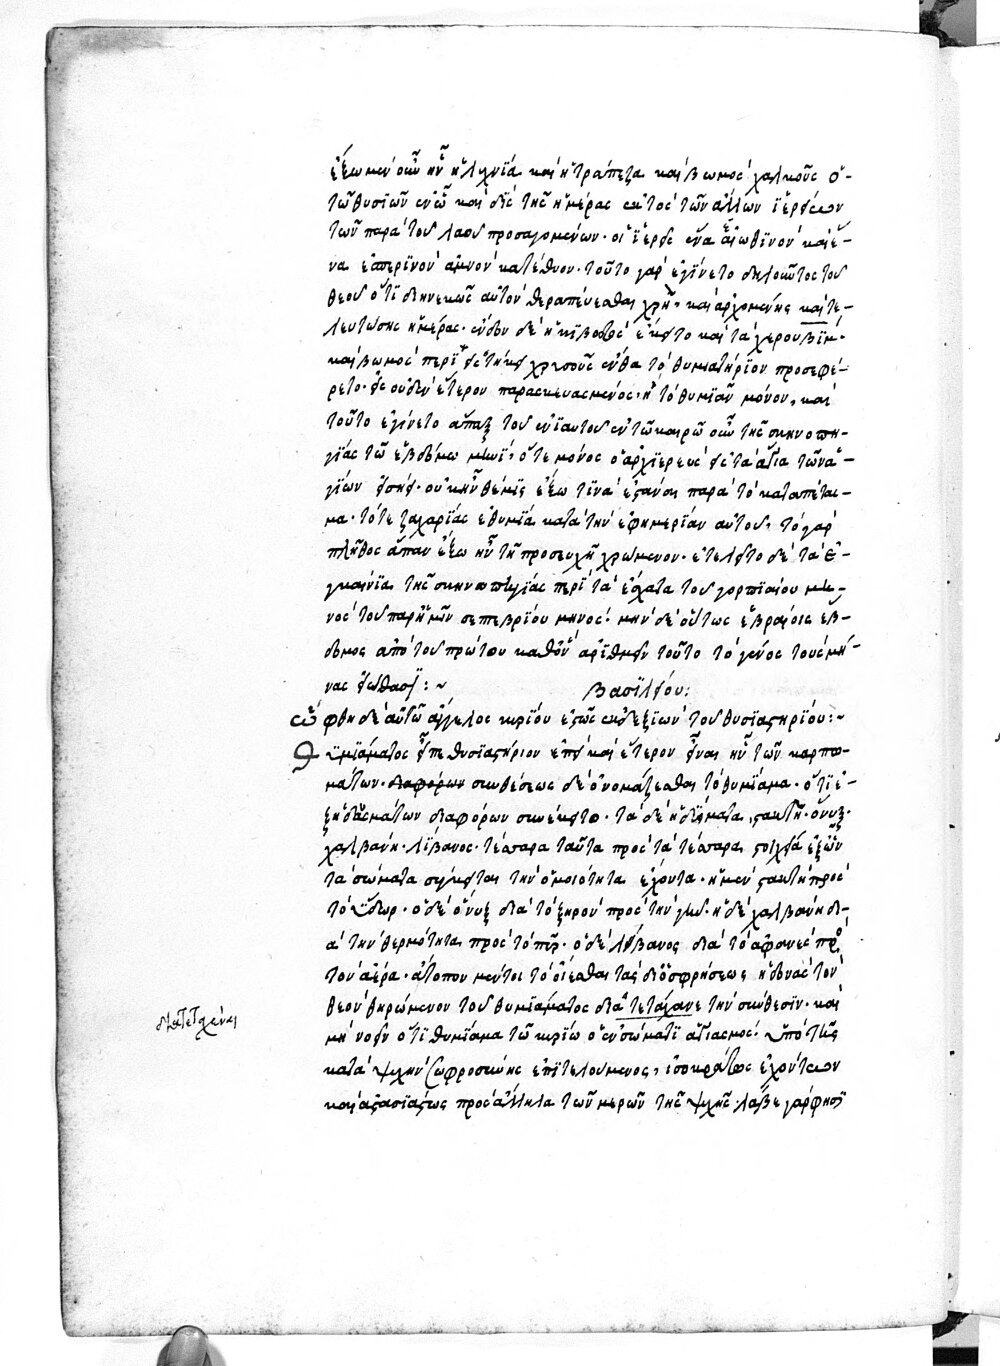 ἔξω μὲν οὖν ἦν ἡ λυχνία καὶ ἡ τράπεζα καὶ βωμὸς χαλκοῦς ὁ
τῶν θυσιῶν ἐν ᾧ καὶ δὶς τῆς ἡμέρας ἐκτὸς τῶν ἄλλων ἱερείων
τῶν παρὰ τοῦ λαοῦ προσαγομένων· οἱ ἱερεῖς ἕνα ἑωθινὸν καὶ ἕ-
να ἑσπερινὸν ἀμνὸν κατέθυον· τοῦτο γὰρ ἐγίνετο δηλοῦντος τοῦ
θεοῦ ὅτι διηνεκῶς αὐτὸν θεραπεύεσθαι χρὴ, καὶ ἀρχομένης καὶ τε-
λευτώσης ἡμέρας· ἔνδον δὲ ἡ κιβωτὸς ἔκειτο καὶ τὰ χερουβίμ·
καὶ βωμὸς περιειστήκει χρυσοῦς ἔνθα τὸ θυμιατήριον προσεφέ-
ρετο· εἰς οὐδὲν ἕτερον παρασκευασμένος, ἢ τὸ θυμιᾶν μόνον, καὶ
τοῦτο ἐγίνετο ἅπαξ τοῦ ἐνιαυτοῦ ἐν τῷ καιρῷ οὖν τῆς σκηνοπη-
γίας τῷ ἑβδόμῳ μηνὶ, ὅτε μόνος ὁ ἀρχιερεὺς εἰς τὰ ἅγια τῶν ἁ-
γίων εἰσῄει· οὐκ ἦν θέμις ἔξω τινὰ ἑστάναι παρὰ τὸ καταπέτασ-
μα· τότε ζαχαρίας ἐθυμία κατὰ τὴν ἐφημερίαν αὐτοῦ, τὸ γὰρ
πλῆθος ἅπαν ἔξω ἦν τῇ προσευχῇ χρώμενον· ἐτελεῖτο δὲ τὰ ἐ-
γκαίνια τῆς σκηνοπηγίας περὶ τὰ ἔσχατα τοῦ γορπιαίου μη-
νὸς τοῦ παρ' ἡμῖν σεπτεβρίου μηνός· μὴν δὲ οὗτος ἑβραίοις ἕβ-
δομος ἀπὸ τοῦ πρώτου καθ' ὃν ἀριθμεῖν τοῦτο τὸ γένος τοὺς μῆ-
νας εἴωθασι :~ βασιλείου:
ὤφθη δὲ αὐτῷ ἄγγελος κυρίου ἑστὼς ἐκ δεξιῶν τοῦ θυσιαστηρίου:~
Θυμιάματος εἶπε θυσιαστήριον ἐπεὶ καὶ ἕτερον εἶναι ἦν τῶν καρπω-
μάτων· διαφόρων συνθέσεως δὲ ὀνομάζεσθαι τὸ θυμίαμα· ὅτι ἐ-
ξ ἡδυσμάτων διαφόρων συνέκειτο· τὰ δὲ ἡδύσματα, στακτὴ· ὄνυξ·
χαλβάνη· λίβανος· τέσσαρα ταῦτα πρὸς τὰ τέσσαρα στοιχεῖα ἐξ ὧν
τὰ σώματα σύγκειται τὴν ὁμοιότητα ἔχοντα· ἡ μὲν στακτὴ πρὸς
τὸ ὕδωρ· ὁ δὲ ὄνυξ διὰ τὸ ξηρὸν πρὸς τὴν γῆν· ἡ δὲ χαλβάνη δι-
ὰ τὴν θερμότητα πρὸς τὸ πῦρ· ὁ δὲ λίβανος διὰ τὸ ἀφανὲς πρὸ
τὸν ἀέρα· ἄτοπον μέντοι τὸ οἴεσθαι τὰς διοσφρήσεως ἡδονὰς τὸν
θεὸν θηρώμενον τοῦ θυμιάματος διατετάχανε τὴν σύνθεσιν· καὶ
μὴ νοεῖν ὅτι θυμίαμα τῷ κυρίῳ ὁ ἐν σώματι ἁγιασμὸς· ὑπὸ τῆς
κατὰ ψυχὴν σωφροσύνης ἐπιτελούμενος, ἰσοκράτως ἐχόντων
καὶ ἀστασιάστως πρὸς ἄλληλα τῶν μερῶν τῆς ψυχῆς· λάβε γὰρ φησὶ
διατεταχέναι